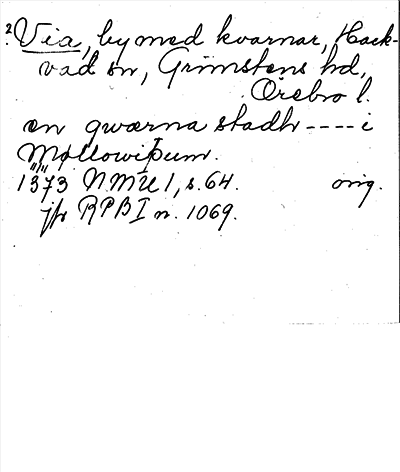 2. Via, by med kvarnar, Hack-
vad sn, Grimstens hd,
Örebro l.
en gwærna stadh ---- i
Møllowiþum.
1373 NMU 1, s. 64. orig.
jfr RPB I n. 1069.